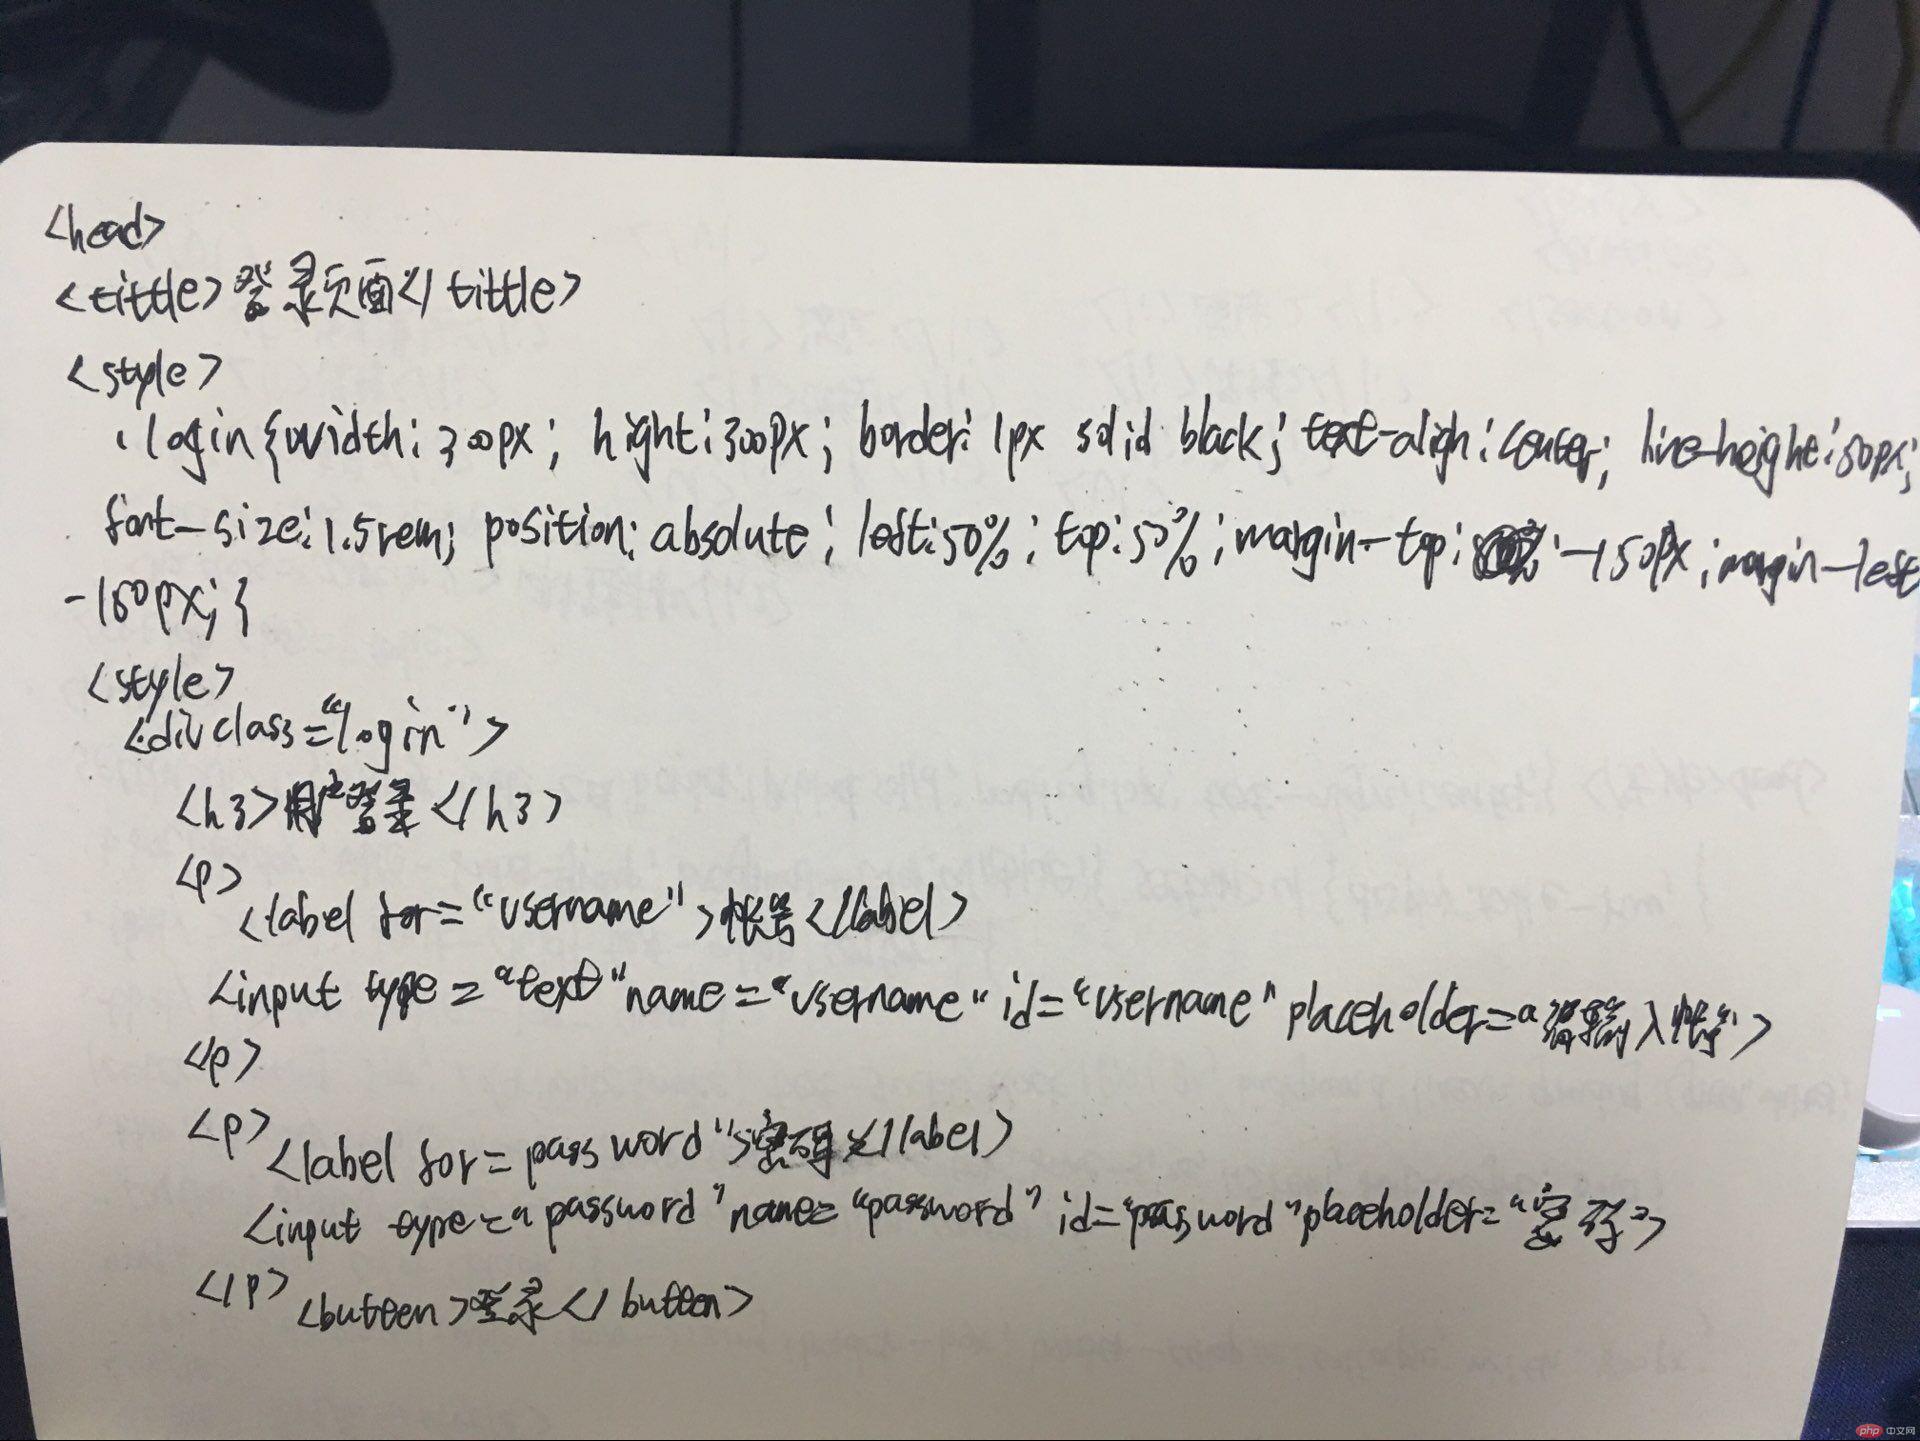 <head>
<tittle>登录页面</tittle>
<style>
.login{width:300px; hight:300px; border:1px solid black; text-aligh:center; line-height:50px;
font-size:1.5rem; position:absolute; left:50%; top:50%; margin-top: -150px; margin-left
-150px; }
<style>
<div class="login">
<h3>用户登录</h3>
<p>
<label for="username">帐号</label>
<input type="text" name="username" id="username" placeholder="请输入帐号">
</p>
<p>
<label for=password">密码</label>
<input type="password" name="password" id="password" placeholder="密码">
</p> <button>登录</button>
php中文网